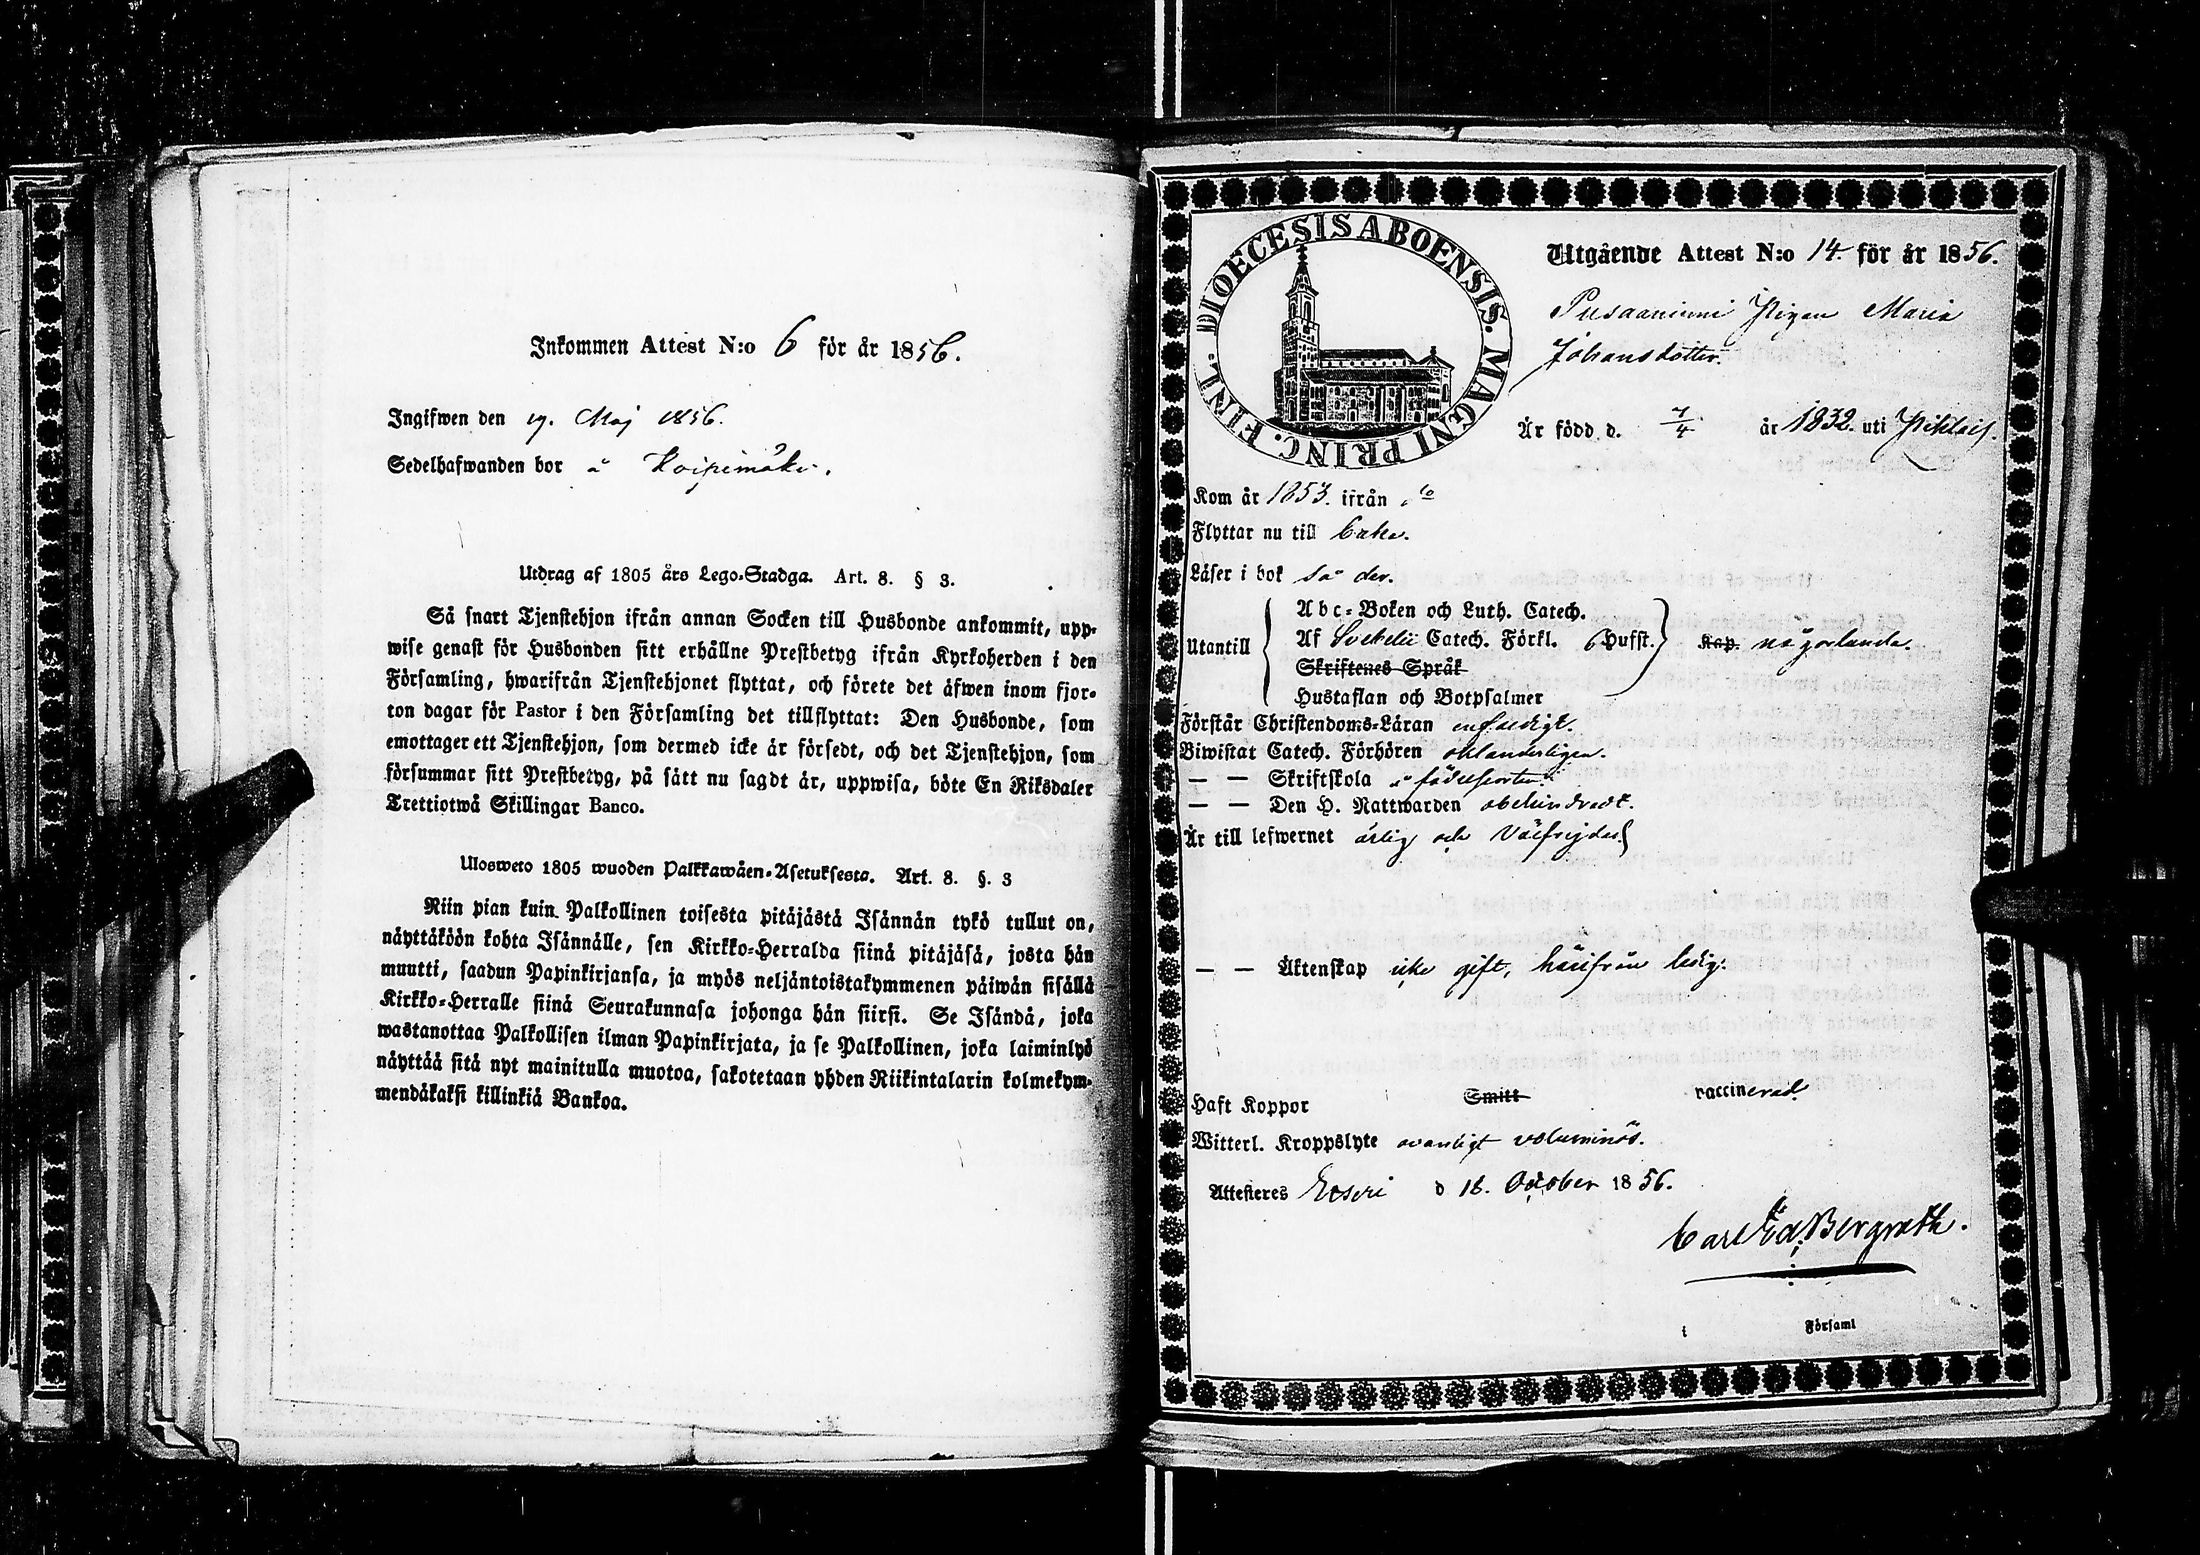 Inkommen Attest N:o 6 för år 1856.
Ingifwen den 19. Maj 1856.
Sedelhafwanden bor å Koipimäki.
Utdrag af 1805 års Lego-Stadga. Art. 8. § 3.
Så snart Tjenstehjon ifrån annan Socken till Husbonde ankommit, upp-
wise genast för Husbonden sitt erhållne Prestbetyg ifrån Kyrkoherden i den
Församling, hwarifrån Tjenstehjonet flyttat, och förete det äfwen inom fjor-
ton dagar för Pastor i den Församling det tillflyttat: Den Husbonde, som
emottager ett Tjenstehjon, som dermed icke är försedt, och det Tjenstehjon, som
försummar sitt Prestbetyg, på sätt nu sagdt är, uppwisa, böte En Riksdaler
Trettiotwå Skillingar Banco.
Ulosweto 1805 wuoden Palkkawäen-Asetuksesta. Art. 8. §. 3
Niin pian kuin Palkollinen toisesta pitäjästä Isännän tykö tullut on,
näyttäköön kohta Isännälle, sen Kirkko-Herralda siinä pitäjäsä, josta hän
muutti, saadun Papinkirjansa, ja myös neljäntoistakymmenen päiwän sisällä
Kirkko-Herralle siinä Seurakunnasa johonga hän siirsi. Se Isändä, joka
wastanottaa Palkollisen ilman Papinkirjata, ja se Palkollinen, joka laiminlyö
näyttää sitä nyt mainitulla muotoa, sakotetaan yhden Riikintalarin kolmekym-
mendäkaksi killinkiä Bankoa.
DIOECESIS ABOENSIS. MAGNI PRINC. FINL.
Utgående Attest N:o 14. för år 1856.
Pusaaninni Pigan Maria
Johansdotter.
Är född d. 7/4 år 1832. uti Pihlais.
Kom år 1853. ifrån do
Flyttar nu till
Läser i bok så der.
Abc-Boken och Luth. Catech.
Utantill Af Svebelii Catech. Förkl. 6 Hufst. Kap. någorlunda.
Skriftenes Språk
Hustaflan och Botpsalmer
Förstår Christendoms-Läran enfaldigt.
Biwistat Catech. Förhören oklanderligen.
— — Skriftskola i
— — Den H. Nattwarden obehindradt.
Är till lefwernet ärlig och välfrejdad
— — Äktenskap icke gift, härifrån ledig.
Haft Koppor Smitt vaccinerad.
Witterl. Kroppslyte ovanligt voluminös.
Attesteres Etseri d 18. October 1856.
Carl Ed. Bergroth.
i Församl